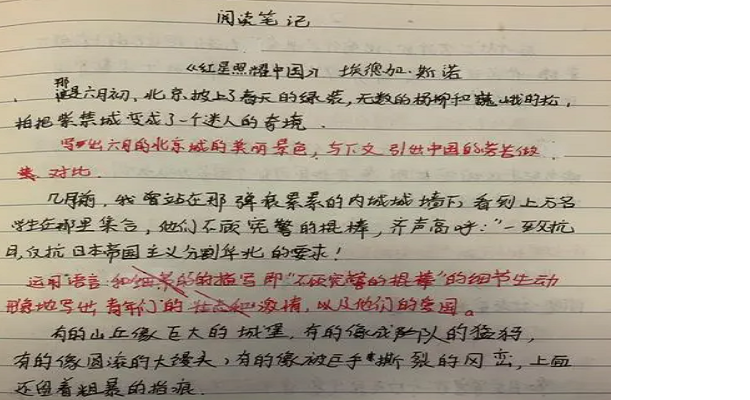 阅读笔记
《红星照耀中国》 埃德加·斯诺
那是六月初，北京披上了春天的绿装，无数的杨柳和巍峨的松，
柏把紫禁城变成了一个迷人的奇境。
写出六月的北京城的美丽景色，与下文引出中国的劳苦做
对比。
几月前，我曾站在那弹痕累累的内城城墙下，看到上万名
学生在那里集合，他们不顾宪警的棍棒，齐声高呼："一致抗
日，反抗日本帝国主义分割华北的要求！
运用语言和细条的的描写即"不顾宪警的棍棒"的细节生动
形象地写出青年们的壮志和激情，以及他们的爱国。
有的山丘像巨大的城堡，有的像成队的猛犸，
有的像圆滚的大馒头，有的像被巨手撕裂的冈峦，上面
还留着粗暴的指痕.